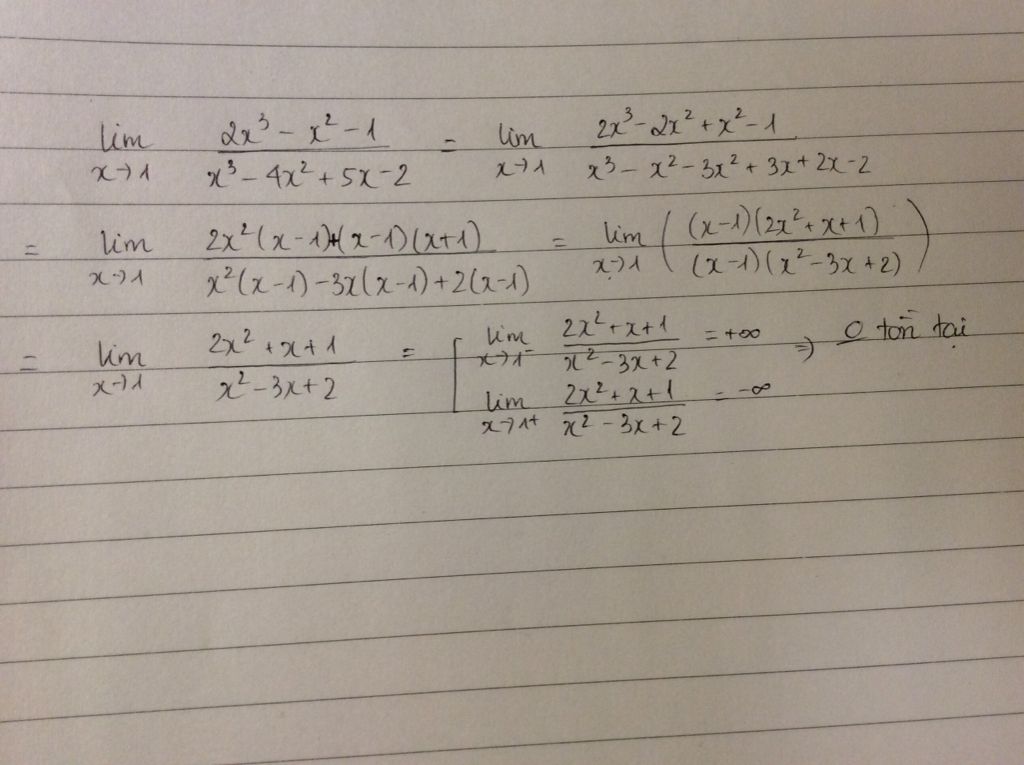 lim x→1 (2x³ - x² - 1)/(x³ - 4x² + 5x - 2) = lim x→1 (2x³ - 2x² + x² - 1)/(x³ - x² - 3x² + 3x + 2x - 2)
= lim x→1 (2x²(x-1)+(x-1)(x+1))/(x²(x-1) - 3x(x-1) + 2(x-1)) = lim x→1 ( ((x-1)(2x² + x + 1))/((x-1)(x² - 3x + 2)) )
= lim x→1 (2x² + x + 1)/(x² - 3x + 2) = [ lim x→1⁻ (2x² + x + 1)/(x² - 3x + 2) = +∞ ⇒ 0 tồn tại
lim x→1⁺ (2x² + x + 1)/(x² - 3x + 2) = -∞